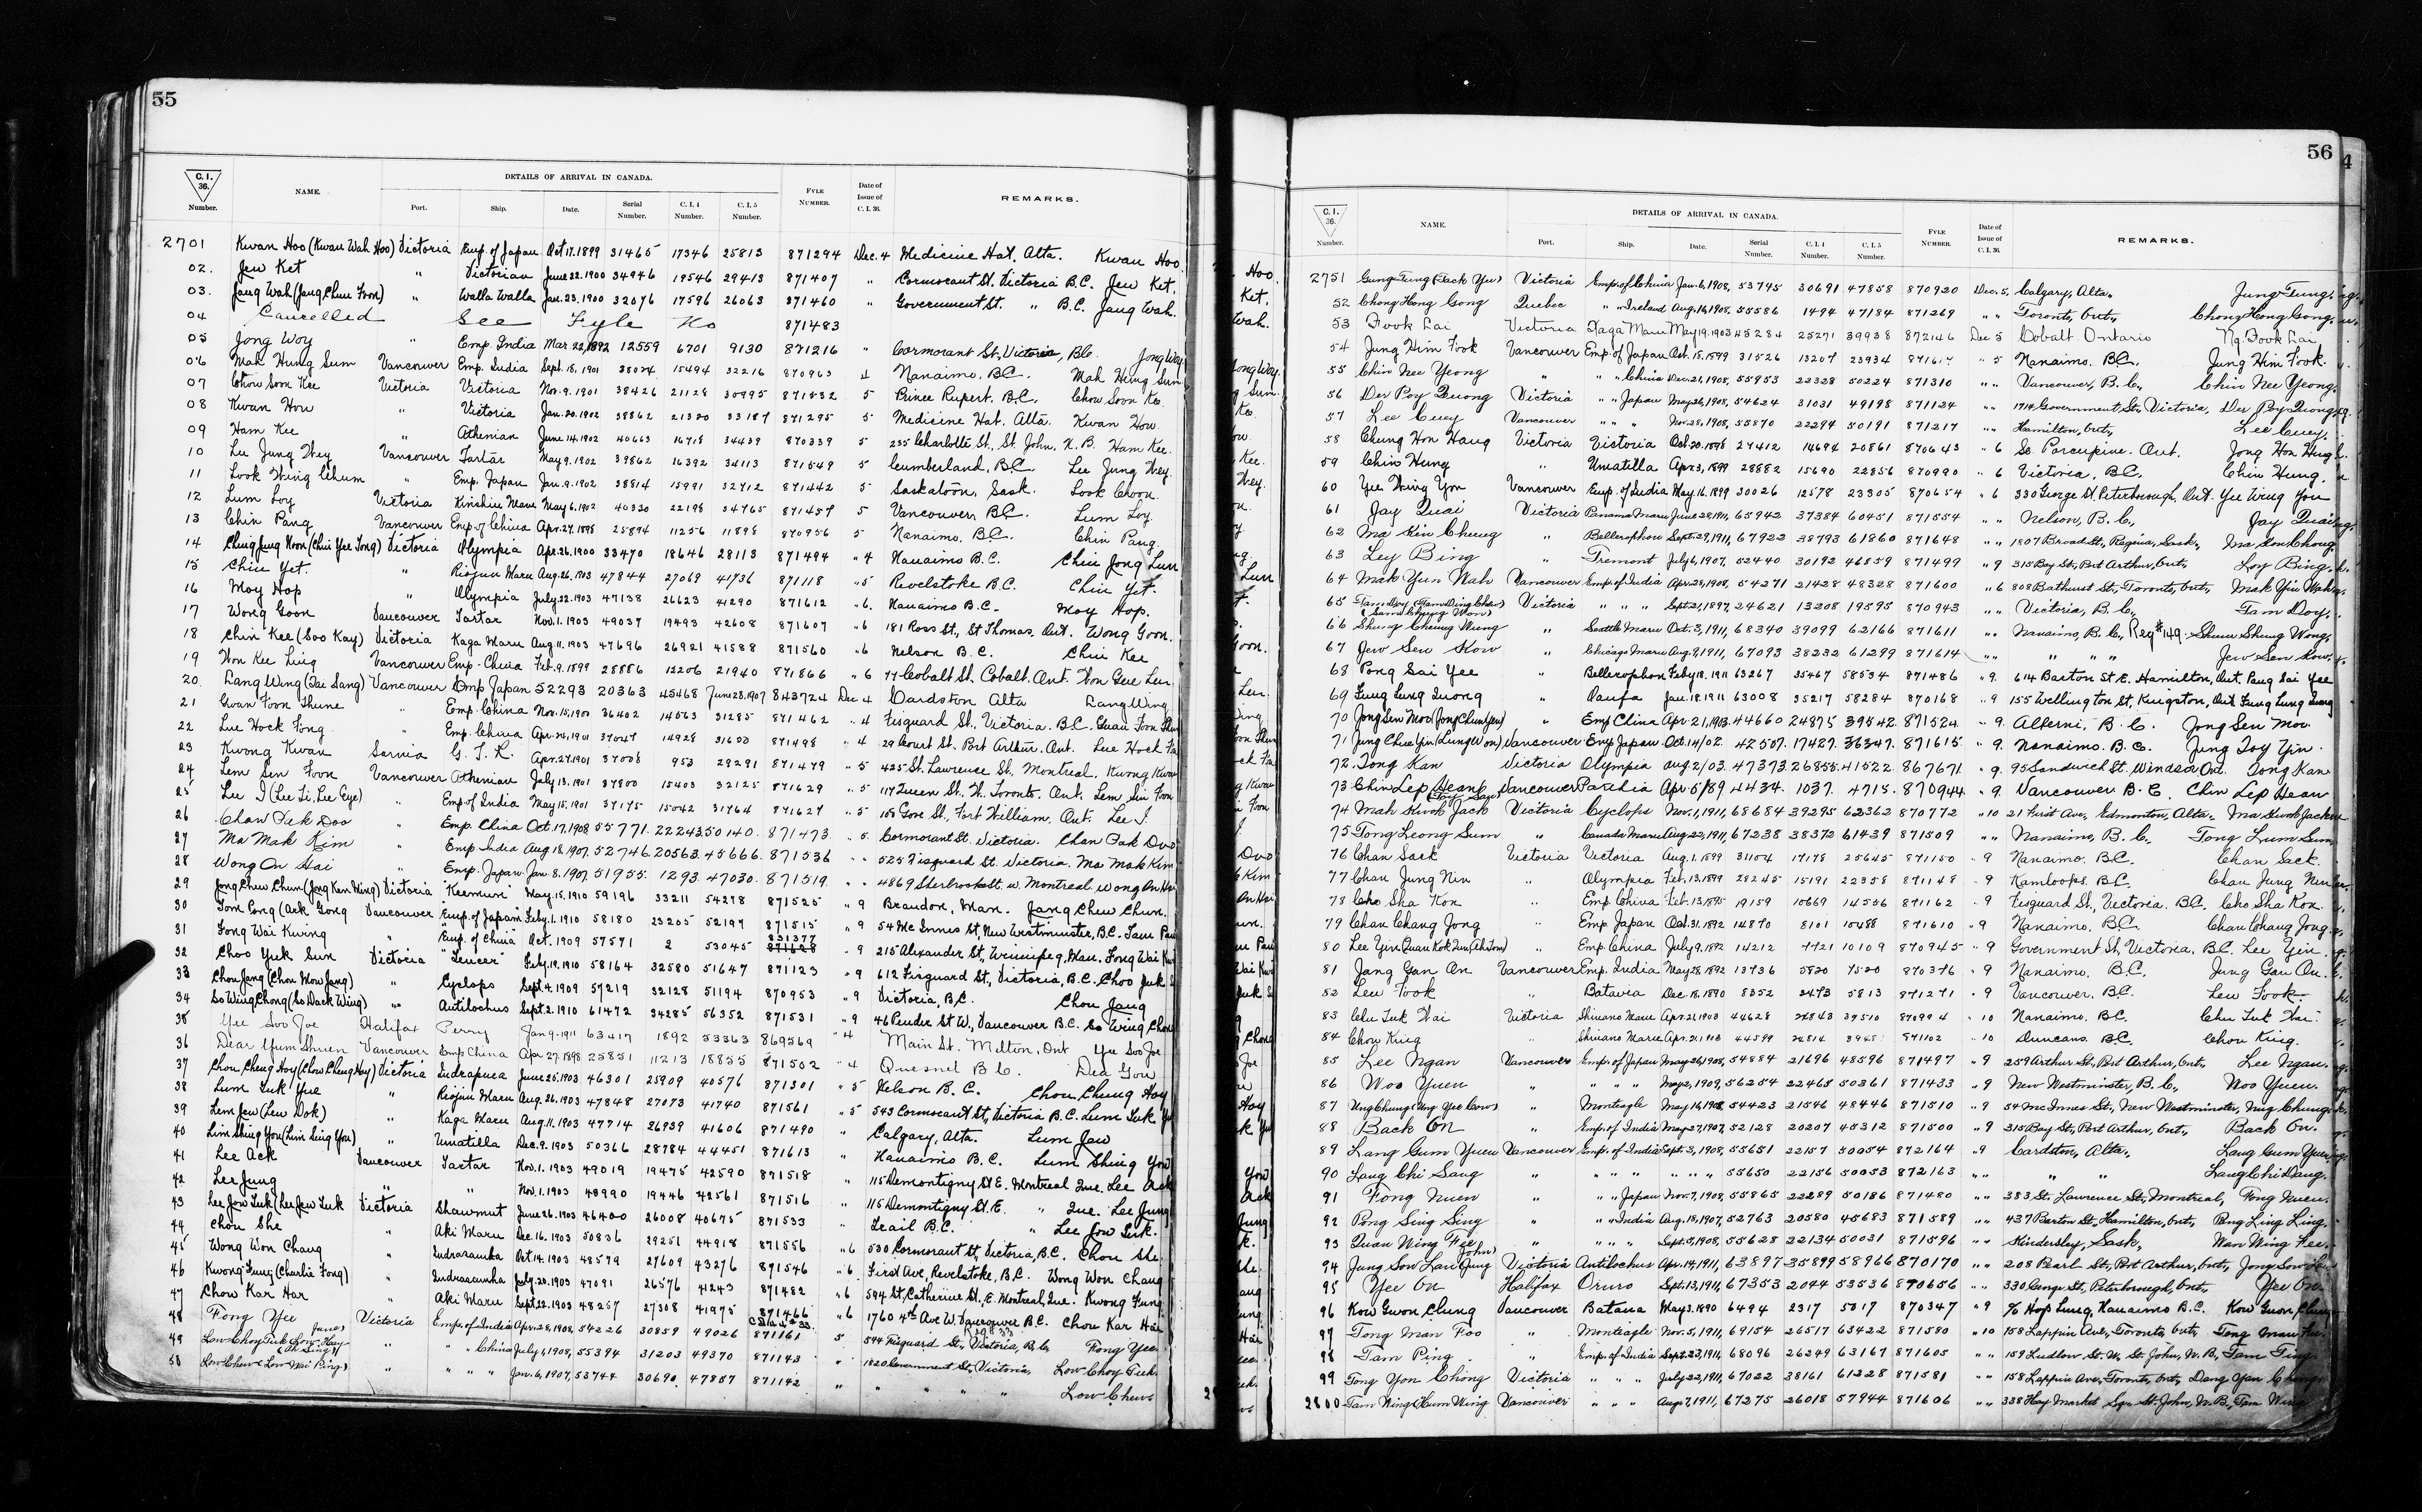 55
C.I. 36. Number. NAME. DETAILS OF ARRIVAL IN CANADA. Port. Ship. Date. Serial Number. C.I.4 Number. C.I.5 Number. FYLE NUMBER. Date of Issue of C.I. 36. REMARKS.
2701 Kwan Hoo (Kwan Wah Hoo) Victoria Emp. of Japan Oct 17. 1899 31465 17346 25813 871294 Dec. 4 Medicine Hat, Alta. Kwan Hoo.
02. Jew Ket " Victorian June 22. 1900 34946 19546 29413 871407 " Cormorant St. Victoria B.C. Jew Ket.
03. Jang Wah (Jang Chue Foon) " Walla Walla Jan. 23. 1900 32076 17596 26063 871460 " Government St. " B.C. Jang Wah.
04 Cancelled See Fyle No 871483
05 Jong Woy " Emp. India Mar. 22, 1892 12559 6701 9130 871216 " Cormorant St, Victoria, B.C. Jong Way
06 Mah Hung Sum Vancouver Emp. India Sept. 18, 1901 15494 32216 870963 4 Nanaimo, B.C. Mah Hung Sum
07 Chow Soon Kee Victoria Victoria Nov. 9. 1901 38426 21128 30995 871432 5 Prince Rupert, B.C. Chow Soon Ke.
08 Kwan How " Victoria Jan. 20. 1902 38862 21320 33187 871295 5 Medicine Hat. Alta. Kwan How.
09 Ham Kee " Athenian June 14. 1902 40663 16718 34439 870339 5 235 Charlotte St., St. John, N.B. Ham Kee.
10 Lee Jung Wey Vancouver Tartar May 9. 1902 39862 16392 34113 871549 5 Cumberland, B.C. Lee Jung Wey.
11 Look Wing Chum " Emp. Japan Jan. 9. 1902 38814 15991 32712 871442 5 Saskatoon, Sask. Look Choon.
12 Lum Loy Victoria Kinshiu Maru May 6. 1902 40330 22198 34765 871457 5 Vancouver, B.C. Lum Loy.
13 Chin Pang Vancouver Emp. of China Apr. 27. 1898 25894 11256 11898 870956 5 Nanaimo, B.C. Chin Pang.
14 Ching Jung Noon (Chin Yee Tong) Victoria Olympia Apr. 26. 1900 33470 18646 28113 871494 " 4 Nanaimo B.C. Chin Jong Lun
15 Chin Yet. " Riojun Maru Aug. 26. 1903 47844 27069 41736 871118 " 5 Revelstoke B.C. Chin Yet.
16 Moy Hop " Olympia July. 22. 1903 47138 26623 41290 871612 " 6. Nanaimo B.C. Moy Hop.
17 Wong Goon Vancouver Tartar Nov. 1. 1903 49037 19493 42608 871607 " 6 181 Ross St., St Thomas, Ont. Wong Goon.
18 Chin Kee (Soo Kay) Victoria Kaga Maru Aug. 11. 1903 47696 26921 41588 871560 " 6 Nelson B.C. Chin Kee
19 Won Kee Ling Vancouver Emp. China Feb. 9. 1899 28886 12206 21940 871866 " 6 77 Cobalt St. Cobalt, Ont. Won Gee Len.
20. Lang Wing (Tai Sang) Vancouver Emp Japan 52293 20363 45468 June 28. 1907 843724 Dec 4 Cardston Alta Lang Wing
21 Gwan Foon Shune " Emp. China Nov. 15, 1900 36402 14563 31285 871462 " 4 Fisguard St, Victoria. B.C. Guan Foon Shun
22 Lue Hock Fong " Emp. China Apr. 24, 1901 37047 14928 31650 871498 " 4 29 Court St. Port Arthur. Ont. Lue Hock Fa
23 Kwong Kwan Sarnia G. T. R. Apr. 27. 1901 37008 953 29291 871479 " 5 425 St. Lawrence St, Montreal. Kwong Kwan
24 Lem Sen Foon Vancouver Athenian July 13. 1901 37800 15403 32125 871629 " 5 117 Queen St. W. Toronto. Ont. Lem Sin Foon
25 Lee I (Lee Ti, Lee Eye) " Emp of India May 15. 1901 37175 15042 31764 871627 " 5 108 Gore St., Fort William. Ont. Lee I.
26 Chan Pak Doo " Emp. China Oct. 17. 1908 55771. 22243. 50140. 871473. " 5 Cormorant St. Victoria. Chan Pak Doo
27 Ma Mak Kim " Emp India Aug 18. 1907. 52746. 20563. 45666. 871536 " " 525 Fisguard St. Victoria. Ma Mak Kim
28 Wong On Hai " Emp. Japan Jan. 8. 1907. 51955. 1293. 47030. 871519. " " 4869 Sherbrooke St. W. Montreal Wong An Hai
29 Jong Chew Chun (Jong Ken Wing) Victoria "Keemun" May. 15. 1910 59196 33211 54278 871525 " 9 Brandon, Man. Jang Chew Chun.
30 Tom Cong (Ark Gong Vancouver "Emp. of Japan" Feby. 1. 1910 58180 23205 52197 871515 " 9 54 Mc Innes St, New Westminster, B.C. Tam Pau
31 Fong Wai Kwing " "Emp. of China Oct. 1909 57571 2 53045 831377 871628 " 9 215 Alexander St, Winnipeg, Man. Fong Wai Kwi
32 Choo Yuk Sun Victoria "Teucer" Feby. 19. 1910 58164 32580 51647 871123 " 9 612 Fisguard St., Victoria, B.C. Choo Yuk S
33 Chou Jang (Chou Mow Jang) " Cyclops Sept. 4. 1909 57219 32128 51194 870953 " 9 Victoria, B.C. Chou Jang
34 So Wing Chong (So Dack Wing) " Antilochus Sept. 2. 1910 61472 34285 56352 871531 " 9 46 Pender St W., Vancouver B.C. So Wing Chong
35 Yee Soo Joe Halifax Perry Jan 9. 1911 63417 1892 53363 869569 " 4 Main St. Milton, Ont Yee Soo Joe
36 Dear Yum Shuen Vancouver Emp China Apr 27. 1898 25851 11213 18855 871502 " 4 Quesnel B.C. Dea You
37 Chou Cheng Hoy (Chow Cheng Hoy) Victoria Indrapura June 25. 1903 46301 25909 40576 871301 " 5 Nelson B.C. Chou Chung Hoy
38 Lum Tuk Yue " Riojun Maru Aug. 26. 1903 47848 27073 41740 871561 " 5 543 Cormorant St, Victoria B.C. Lum Tuk Yu
39 Lem Jew (Lew Dok) " Kaga Maru Aug. 11. 1903 47714 26939 41606 871490 " Calgary, Alta. Lum Jew
40 Lim Shing You (Lim Sing You) " Umatilla Dec. 9. 1903 50366 28784 44451 871613 " Nanaimo B.C. Lum Shing You
41 Lee Ack Vancouver Tartar Nov. 1. 1903 49019 19475 42590 871518 " 115 Demontigny St E. Montreal Que. Lee Ack
42 Lee Jung " " Nov. 1. 1903 48990 19446 42561 871516 " 115 Demontigny St. E. " Que. Lee Jung
43 Lee Jow Tuk (Lee Jew Tuk Victoria Shawmut June 26. 1903 46400 26008 40675 871533 " Trail B.C. " Lee Jow Terk.
44 Chou She " Aki Maru Dec. 16. 1903 50836 29251 44918 871556 " 6 530 Cormorant St, Victoria, B.C. Chou She.
45 Wong Won Chang " Indrasamha Oct. 14. 1903 48579 27609 43276 871546 " 6. First Ave, Revelstoke, B.C. Wong Won Chang
46 Kwong Fung (Charlie Fong) " Indrasamha July. 20. 1903 47091 26576 41243 871482 " 6 594 St, Catherine St., E. Montreal, Que. Kwong Fung
47 Chow Kar Har " Aki Maru Sept. 22. 1903 48257 27308 41975 871466 " 6 1760 4th Ave W. Vancouver B.C. Chou Kar Hai
48 Fong Yee Victoria Emp. of India Apr. 28, 1908, 54226 30859 49026 871161 5 544 Fisguard St., Victoria, B.C. Fong Yee.
49 Low Choy Tuk (Low Hay " " China July 1, 1908, 55394 31203 49370 871143 " 1820 Government St., Victoria, Low Choy Tuk.
50 Low Chew (Low Wai Ping) " " " Jan. 6, 1907, 53744 30690. 47857 871142 " " " " " Low Chew.
56
C.I. 36. Number. NAME. DETAILS OF ARRIVAL IN CANADA. Port. Ship. Date. Serial Number. C.I.4 Number. C.I.5 Number. FYLE NUMBER. Date of Issue of C.I. 36. REMARKS.
2751 Gung Tung (Jack Yu) Victoria Emp. of China Jan. 6, 1908, 53745 30691 47858 870920 Dec. 5, Calgary, Alta., Jung Tung.
52 Chong Hong Gong Quebec " " Ireland Aug. 14, 1908, 55586 1494 47184 871269 " " Toronto, Ont., Chong Hong Gong.
53 Fook Lai Victoria Kaga Maru May 19. 1903 45284 25271 39938 872146 Dec 5 Cobalt Ontario Ng. Fook Lai
54 Jung Him Fook Vancouver Emp. of Japan Oct. 18. 1899 31526 13207 23934 " 5 Nanaimo. B.C. Jung Him Fook.
55 Chin Nee Yeong " " " China Dec. 21, 1908, 55953 22328 50224 871310 " " Vancouver, B.C., Chin Nee Yeong.
56 Der Poy Quong Victoria " " Japan May 26, 1908, 54624 31031 49198 871124 " " 1714 Government St., Victoria, Der Poy Quong.
57 Lee Cuey Vancouver " " " Nov. 28, 1908, 55870 22294 50191 871217 " " Hamilton, Ont., Lee Cuey.
58 Chung Hon Hang Victoria Victoria Oct. 20. 1898 27412 14694 20861 870643 " 6 So. Porcupine. Ont. Jong Hon Hung
59 Chin Hung " Umatilla Apr. 3, 1899 28882 15690 22856 870990 " 6 Victoria, B.C. Chin Hung.
60 Yee Wing Yon Vancouver Emp. of India May. 16. 1899 30026 12578 23305 870654 " 6 330 George St, Peterborough, Ont. Yee Wing You
61 Jay Quai Victoria Panama Maru June 28, 1911, 65942 37384 60451 871554 " " Nelson, B.C., Jay Quai
62 Ma Kin Cheung " Bellerophon Sept. 29, 1911, 67922 38793 61860 871648 " " 1807 Broad St., Regina, Sask., Ma Kon Chong.
63 Luy Bing " Tremont July 6, 1907, 52440 30192 46859 871499 " 9 315 Bay St., Port Arthur, Ont., Loy Bing.
64 Mak Yun Wah Vancouver Emp. of India Apr. 28, 1908, 54271 21428 48328 871600 " 6 808 Bathurst St., Toronto, Ont., Mak Yin Wah.
65 Tam Doy (Tam Ding Chew) Victoria " " " Sept. 21, 1897, 24621 13208 19595 870943 " " Victoria, B.C., Tam Doy.
66 Shung Cheung Wung (Sam Chung Won) " Seattle Maru Oct. 3, 1911, 68340 39099 62166 871611 " " Nanaimo, B.C., Reg # 149. Shum Sheng Wong.
67 Jew Sen Kow " Chicago Maru Aug. 9, 1911, 67093 38232 61299 871614 " " " " " Jew Sen Kow.
68 Pong Sai Yee " Bellerophon Feby. 18. 1911 63267 35467 58534 871486 " 9. 614 Barton St E. Hamilton, Ont. Pang Sai Yee
69 Fung Lung Quong " Oanfa Jan. 18. 1911 63008 35217 58284 870168 " 9 155 Wellington St, Kingston, Ont Fung Lung Quong
70 Jong Sen Mow (Jong Chun Yen) " Emp China Apr. 21, 1903. 44660 24875 39542. 871524. " 9. Alberni, B.C. Jong Sen Mow
71. Jung Chue Yin (Lung Won) Vancouver Emp Japan. Oct. 14/02. 42507. 17427. 36347. 871615. " 9. Nanaimo. B.C. Jung Joy Yin.
72. Tong Kan Victoria Olympia Aug. 2/03. 47373. 26855. 41522. 867671 " 9. 95 Sandwich St. Windsor Ont. Tong Kan
73 Chin Lep Heang Vancouver Parthia Apr. 5/89. 4434. 1037. 4715. 870944 " 9. Vancouver B.C. Chin Lep Hean
74 Mah Kwok Jack Victoria Cyclops Nov. 1, 1911, 68684 39295 62362 870772 " 10 21 First Ave, Edmonton, Alta., Ma Kwok Jack
75 Tong Leong Sum " Canada Maru Aug. 22, 1911, 67238 38372 61439 871509 " " Nanaimo, B.C., Tong Lum Sum.
76 Chan Sack Victoria Victoria Aug. 1. 1899 31104 17178 25645 871150 " 9 Nanaimo. B.C. Chan Sack.
77 Chan Jung Nin " Olympia Feb. 13, 1899 28245 15191 22358 871148 " 9 Kamloops. B.C. Chan Jung Nin
78 Cho Sha Kon " Emp. China Feb. 13. 1895 19159 10669 14556 871162 " 9 Fisguard St., Victoria. B.C. Cho Sha Kon.
79 Chan Chang Jong " Emp Japan Oct. 31. 1892 14870 8101 10488 871610 " 9 Nanaimo. B.C. Chan Chang Jong.
80 Lee Yin (Quan Kok Zun (Ah Tom) " Emp. China July 9. 1892 14212 7721 10109 870945 " 9 Government St, Victoria. B.C. Lee Yin.
81 Jang Gan On Vancouver Emp. India May 28. 1892 13736 5820 7520 870376 " 9 Nanaimo. B.C. Jung Gan On.
82 Leu Fook " Batavia Dec. 18. 1890 8352 3473 5813 871271 " 9 Vancouver. B.C. Leu Fook.
83 Chu Tuk Wai Victoria Shinano Maru Apr. 21. 1903 44628 24843 39510 870994 " 10 Nanaimo, B.C. Chu Tuk Wai.
84 Chow King " Shinano Maru Apr. 21. 1903 44599 24814 871102 " 10 Duncans. B.C. Chow King.
85 Lee Ngan Vancouver Emp. of Japan May 26, 1908, 54884 21696 48596 871497 " 9 259 Arthur St., Port Arthur, Ont., Lee Ngan.
86 Woo Yuen " " " " May 2, 1909, 56254 22465 50361 871433 " 9 New Westminster, B.C., Woo Yuen.
87 Ung Chung (Ung Yee Cow) " Monteagle May 16, 1908, 54423 21546 48446 871510 " 9 54 McInnes St., New Westminster, Mug Chung.
88 Back On " Emp. of India May 27, 1907, 52128 20207 45312 871500 " 9 315 Bay St., Port Arthur, Ont., Back On.
89 Lang Gum Yuen Vancouver Emp. of India Sept. 3, 1908, 55651 22157 50054 872164 " 9 Cardston, Alta., Lang Gum Yuen.
90 Lang Chi Sang " " " " " " " 55650 22156 50053 872163 " " " " Lang Chi Hang.
91 Fong Nuen " " " Japan Nov. 7, 1908, 55865 22289 50186 871480 " " 383 St. Lawrence St., Montreal, Fong Nuen.
92 Pong Sing Sing " " " India Aug. 18, 1907, 52763 20580 45683 871589 " " 437 Barton St., Hamilton, Ont., Pong Ling Ling.
93 Quan Wing Fee " " " " Sept. 3, 1908, 55628 22134 50031 871596 " " Kindersley, Sask., Wan Wing Fee.
94 Jung Sow Lan (John Jung) Victoria Antilochus Apr. 14, 1911, 63897 35899 58966 870170 " " 208 Pearl St., Port Arthur, Ont., Jong Sow
95 Yee On Halifax Oruro Sept. 13, 1911, 67353 2044 53536 870656 " " 330 George St., Peterborough, Ont., Yee On.
96 Kow Gwon Clung Vancouver Batavia May 3. 1890 6494 2317 5017 870347 " 9 % Hop Lung, Nanaimo B.C. Kow Guon Clung
97 Tong Man Foo " Monteagle Nov. 5, 1911, 69154 26517 63422 871580 " 10 158 Lappin Ave., Toronto, Ont., Tong Man Fu.
98 Tam Ping. " Emp. of India Sept. 23, 1911, 68096 26249 63167 871605 " " 159 Ludlow St. W., St. John, N.B., Tam Ting.
99 Tong Yon Chong Victoria " " " July 22, 1911, 67022 38161 61228 871581 " " 158 Lappin Ave., Toronto, Ont., Dang Yan Chong.
2800 Tam Wing (Hum Wing Vancouver " " " Aug. 7, 1911, 67275 26018 57944 871606 " " 338 Hay Market Sq., St. John, N.B., Tam Wing